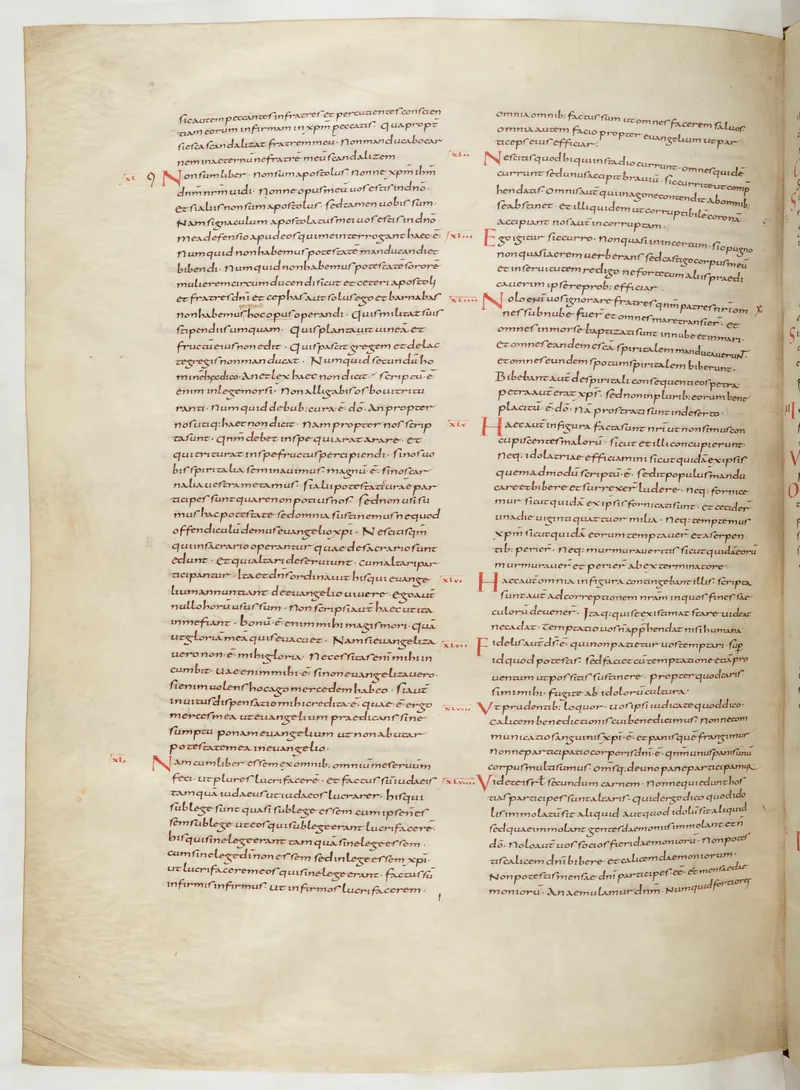 sic autem peccantes in fratres et percutientes conscien
tiam eorum infirmam in xpm peccatis. Quapropt
si esca scandalizat fratrem meu. Non manducabo car
nem in aeternu ne fratrē meū scandalizem
xl. 9 Non sum liber. Non sum apostolus. Nonne xpm ihm
dnm nrm uidi. Nonne opus meū uos estis in dno.
et si aliis non sum apostolus. sed tamen uobis sum.
Nam signaculum apostolatus mei uos estis in dno
mea defensio apud eos qui me interrogant haec ē.
Numquid non habemus potestatē manducandi et
bibendi. Numquid non habemus potestatē sororē
mulierem circumducendi sicut et ceteri apostoli
et fratres dni et cephas aut solus ego et barnabas
non habemus hoc opus operandi. Quis militat suis
stipendiis umquam. Quis plantauit uineā et
fructū eius non edit. Quis pascit gregem et de lac
te gregis non manducat. Numquid secundū ho
minē haec dico. An et lex haec non dicit. scriptū ē
enim in lege mosi. Non alligabis os boui tritu
ranti. Numquid de bub: cura ē dō. An propter
nos utiq: haec non dicit. Nam propter nos scrip
ta sunt. qnm debet in spe qui arat arare. et
qui triturat in spe fructus percipiendi. Si nos uo
bis spiritalia seminauimus. magnū ē. si nos car
nalia uestra metamus. si alii potestatis urae par
ticipes sunt quare non potius nos. sed non usi su
mus hac potestate sed omnia sustinemus ne quod
offendiculū demus euangelio xpi. Nescitis qm
qui in sacrario operantur quae de sacrario sunt
edunt. et qui altari deseruiunt. cum altari par
ticipantur. Ita et dns ordinauit his qui euange
lium annuntiant de euangelio uiuere. ego aut
nullo horū usus sum. Non scripsi aut haec ut ita
in me fiant. bonū ē enim mihi magis mori. quā
ut gloriā meā quis euacuet. Nam si euangeliza
uero non ē mihi gloria. Necessitas enī mihi in
cumbit. uae enim mihi ē si non euangelizauero.
si enim uolens hoc ago mercedem habeo. si aut
inuitus dispensatio mihi credita ē. quae ē ergo
merces mea ut euangelium praedicans sine
sumptu ponam euangelium ut non abutar
potestate mea in euangelio.
xl. Nam cum liber essem ex omnib: omniū me seruum
feci. ut plures lucri facerē. et factus sū iudaeis
tamquā iudaeus ut iudaeos lucrarer. his qui
sub lege sunt quasi sub lege essem cum ipse nō es
sem sub lege ut eos qui sub lege erant lucri facerē.
his qui sine lege erant tamquā sine lege essem.
cum sine lege di non essem sed in lege essem xpi.
ut lucri facerem eos qui sine lege erant. factus sū
infirmis infirmus. ut infirmos lucri facerem.
omnia omnib: factus sum ut omnes facerem saluos
omnia autem facio propter euangelium ut par
ticeps eius efficiar.
Nescitis quod hi qui in stadio currunt. omnes quidē
currunt sed unus accipit brauiū. sic currite ut comp
hendatis. omnis aut qui in agone contendit ab omnib:
se abstinet. et illi quidem ut corruptibilē coronā
accipiant nos aut incorruptam.
Ego igitur sic curro. Non quasi in incertum. sic pugno
non quasi aerem uerberans sed castigo corpus meū
et in seruitutem redigo ne forte cum aliis praedi
cauerim ipse reprob: efficiar.
Nolo enī uos ignorare fratres qnm patres nri om
nes sub nube fuer et omnes mare transier. et
omnes in morse baptizati sunt in nube et in mari.
et omnes eandem escā spiritalem manducauerunt
et omnes eundem spo tum spiritalem biberunt.
Bibebant aut de spiritali consequenti eos petra.
petra aut erat xps. sed non in plurib: eorum bene
placitū ē dō. Nā prostrati sunt in deserto.
xlv Haec aut in figura facta sunt nri ut non simus con
cupiscentes malorū. sicut et illi concupierunt.
Neq: idolatriae efficiamini sicut quidā ex ipsis
quemadmodū scriptū ē. sedit populus mandu
care et bibere et surrexer ludere. Neq: fornice
mur sicut quidā ex ipsis fornicati sunt. et cecider
una die uiginti quattuor milia. Neq: temptemus
xpm sicut quidā eorum temptauer et a serpen
tib: perier. Neq: murmuraueritis sicut quidā eorū
murmurauer et perier ab exterminatore.
xlvi Haec aut omnia in figura contingebant illis. scripta
sunt aut ad correptionem nram in quos fines sae
culorū deuener. Itaq: qui se existimat stare uideat
ne cadat. Temptatio uos nō apphendat nisi humana
Fidelis aut ds ē. qui non patietur uos temptari sup
id quod potestis. sed faciet cū temptatione etiā pro
uentum ut possitis sustinere. propter quod caris
simi mihi. fugite ab idolorū cultura.
Ut prudentib: loquor. uos ipsi iudicate quod dico.
calicem benedictionis cui benedicimus. Nonne com
municatio sanguinis xpi ē. et panis quē frangimus
nonne participatio corporis dni ē. qnm unus panis unū
corpus multi sumus. omsq: de uno pane participamus.
Videte isrl secundum carnem. Nonne qui edunt hos
tias participes sunt altaris. quid ergo dico quod ido
lis immolatū sit aliquid aut quod idolū sit aliquid
sed quae immolant gentes daemoniis immolant et n
dō. Nolo aut uos socios fieri daemoniorū. Non potes
tis calicem dni bibere. et calicem daemoniorum.
Non potestis mensae dni participes ēē et mensae dae
moniorū. An aemulamur dnm. Numquid fortiores